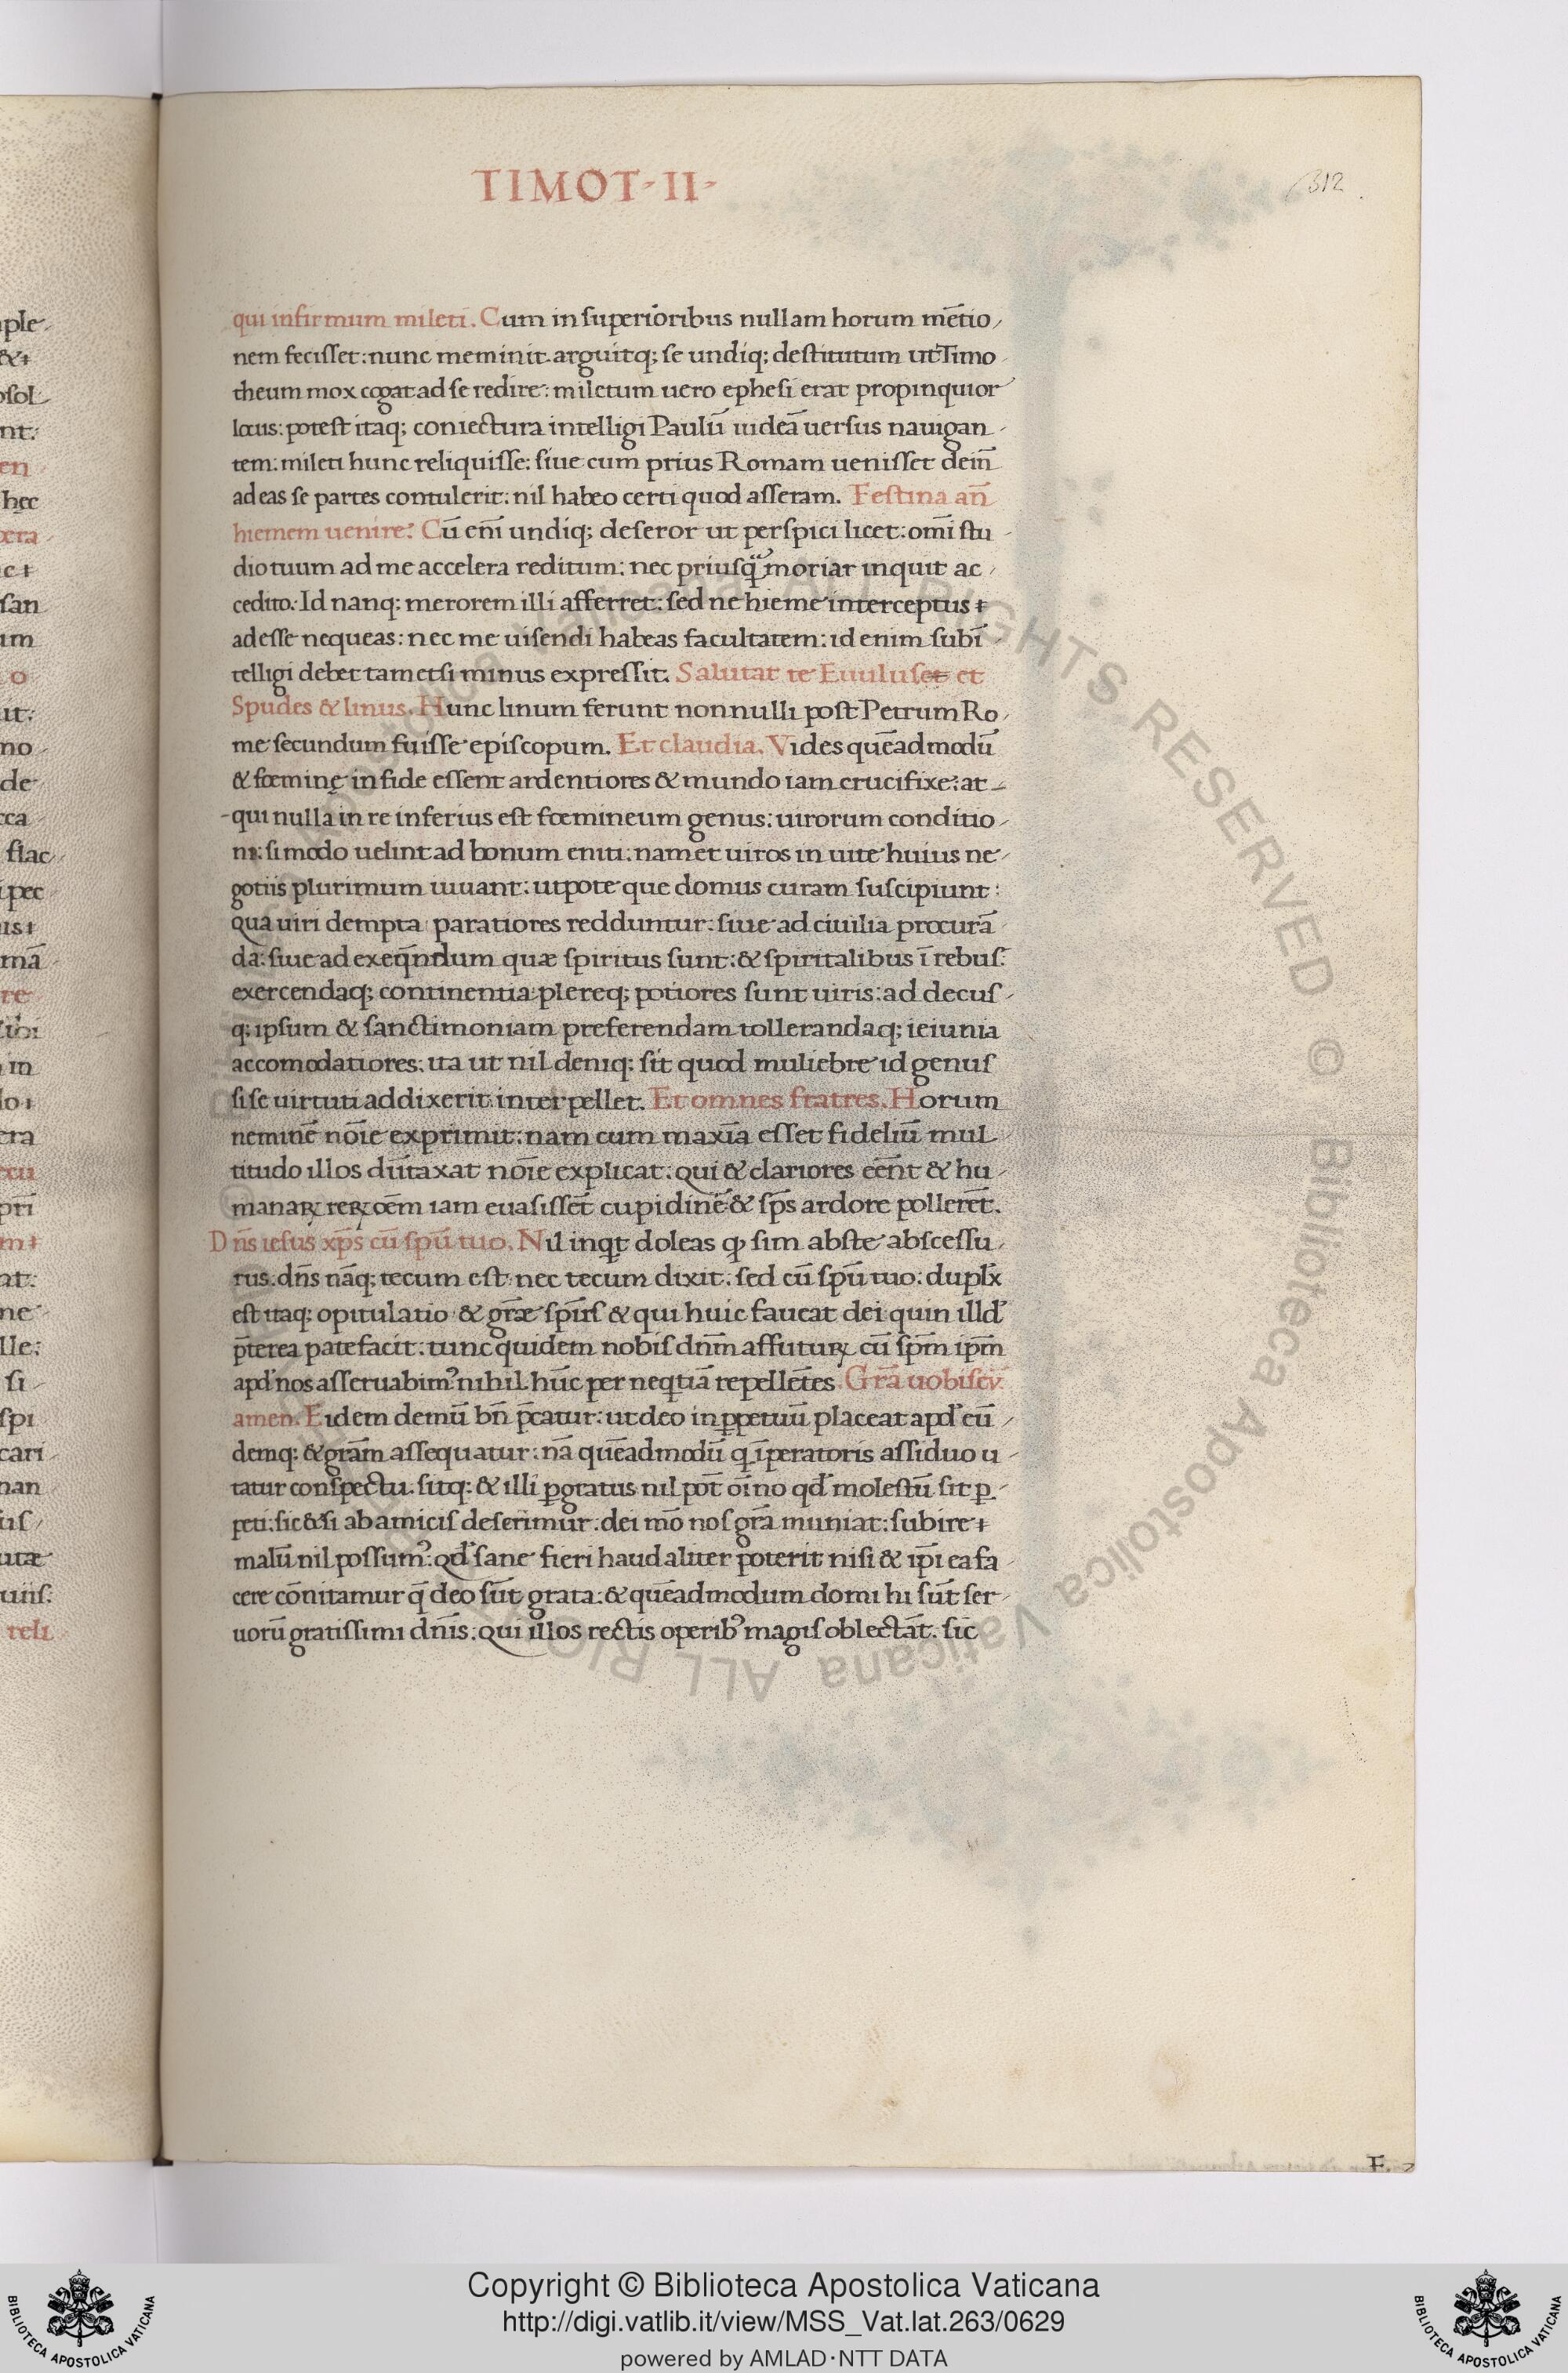 TIMOT-II-
312
qui infirmum mileti. Cum in superioribus nullam horum mētio-
nem fecisset: nunc meminit. arguitq; se undiq; destitutum ut Timo-
theum mox cogat ad se redire: miletum uero ephesi erat propinquior
locus: potest itaq; coniectura intelligi Paulū iudeā uersus nauigan-
tem: mileti hunc reliquisse: siue cum prius Romam uenisset dein̄
ad eas se partes contulerit: nil habeo certi quod asseram. Festina an̄
hiemem uenire. Cū enī undiq; deseror ut perspici licet: omī stu-
dio tuum ad me accelera reditum: nec priusq̃ moriar inquit ac-
cedito. Id nanq; merorem illi afferret: sed ne hieme interceptus
adesse nequeas: nec me uisendi habeas facultatem: id enim subī-
telligi debet tametsi minus expressit. Salutat te Euulus et et
Spudes & linus. Hunc linum ferunt nonnulli post Petrum Ro-
me secundum fuisse episcopum. Et claudia. Vides quēadmodū
& fœminę in fide essent ardentiores & mundo iam crucifixe: at-
-qui nulla in re inferius est fœmineum genus: uirorum conditio-
ni: si modo uelint ad bonum eniti: nam et uiros in uite huius ne-
gotiis plurimum iuuant: utpote que domus curam suscipiunt:
qua uiri dempta paratiores redduntur: siue ad ciuilia procurā
da: siue ad exeq̄ndum quæ spiritus sunt: & spiritalibus ī rebus:
exercendaq; continentia plereq; potiores sunt uiris: ad decus-
q; ipsum & sanctimoniam preferendam tollerandaq; ieiunia
accomodatiores: ita ut nil deniq; sit quod muliebre id genus
si se uirtuti addixerit interpellet. Et omnes fratres. Horum
neminē noīe exprimit: nam cum maxīa esset fideliū mul-
titudo illos dūtaxat noīe explicat: qui & clariores eēnt & hu-
manaꝝ reꝝ oēm iam euasissēt cupidinē & sp̄s ardore pollerēt.
Dn̄s iesus xp̄s cū spū tuo. Nil inqt doleas ꝙ sim abste abscessu-
rus: dn̄s nāq; tecum est: nec tecum dixit: sed cū spū tuo: duplx̄
est itaq; opitulatio & gr̄æ spīus & qui huic faueat dei quin illd'
p̄terea patefacit: tunc quidem nobis dn̄m affuturꝝ cū spm̄ ipm̄
apd' nos asseruabim9 nihil hūc per neqtiā repellētes. Grā uobiscū.
amen. Eidem demū bn̄ p̄catur: ut deo in ꝑpetuū placeat apd' eū-
demq; & grām assequatur: nā quēadmodū q īperatoris assiduo u-
tatur conspectu: sitq; & illi ꝑgratus nil pot̄ oīno qd' molestū sit ꝑ-
peti: sic & si ab amicis deserimur: dei mō nos grā muniat: subire
malū nil possum9: qd' sane fieri haud aliter poterit nisi & ipī ea fa-
cere cōnitamur q̄ deo sūt grata: & quēadmodum domi hi sūt ser-
uorū gratissimi dn̄is: qui illos rectis operib9 magis oblectāt: sic
Copyright © Biblioteca Apostolica Vaticana
http://digi.vatlib.it/view/MSS_Vat.lat.263/0629
powered by AMLAD·NTT DATA